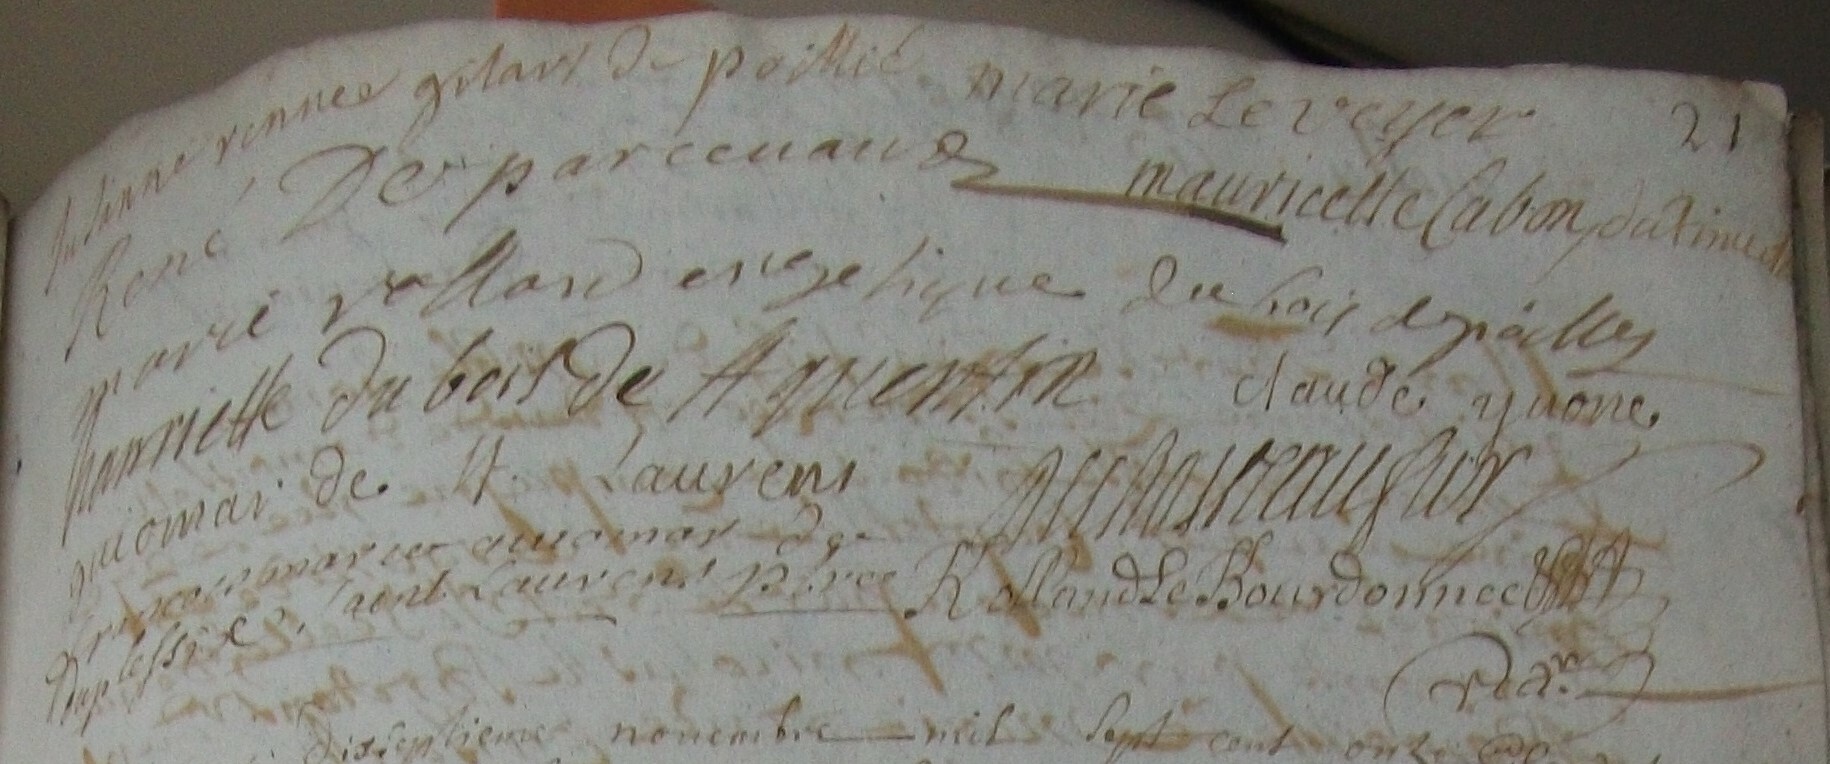 rennee gilart de poillié marie Le veyer 21
René De parcevaux mauricette Cabon
marie rolland engelique du bois
henriette du bois de st quentin claude yvone
guiomar de st Laurens
francois marie guiomar de
duplessix, saint Laurens p.re Rolland Le Bourdonnec
rect.r
dixseptieme novembre mil sept cent onze